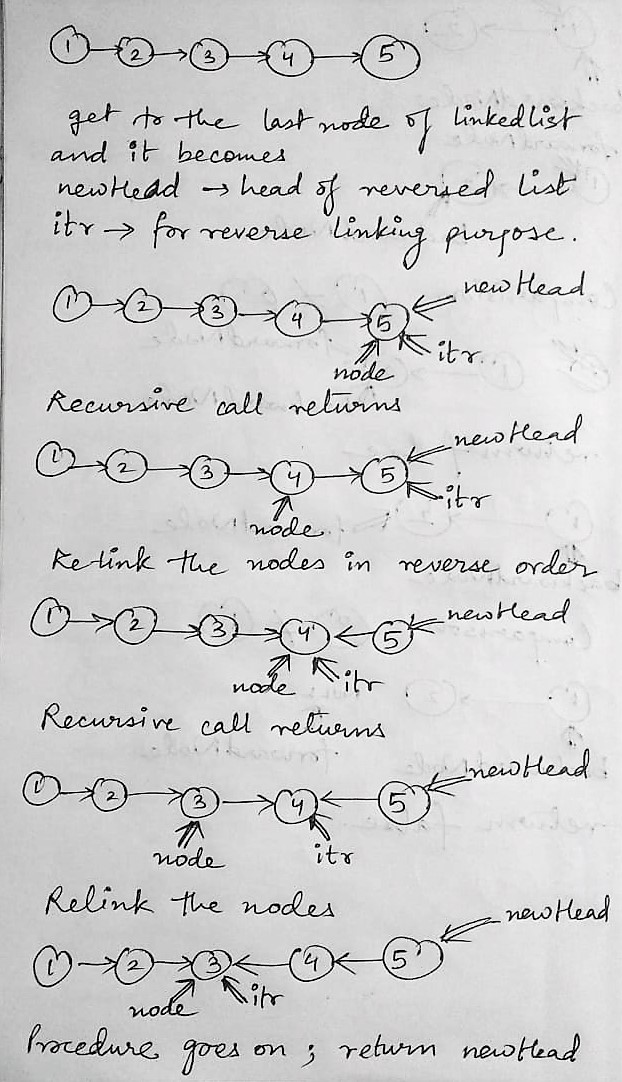 1 → 2 → 3 → 4 → 5
get to the last node of linkedlist
and it becomes
newHead → head of reversed list
itr → for reverse linking purpose.
1 → 2 → 3 → 4 → 5 newHead
node itr
Recursive call returns
1 → 2 → 3 → 4 → 5 newHead
node itr
Re-link the nodes in reverse order
1 → 2 → 3 → 4 ← 5 newHead
node itr
Recursive call returns
1 → 2 → 3 → 4 ← 5 newHead
node itr
Relink the nodes
1 → 2 → 3 ← 4 ← 5 newHead
node itr
Procedure goes on ; return newHead